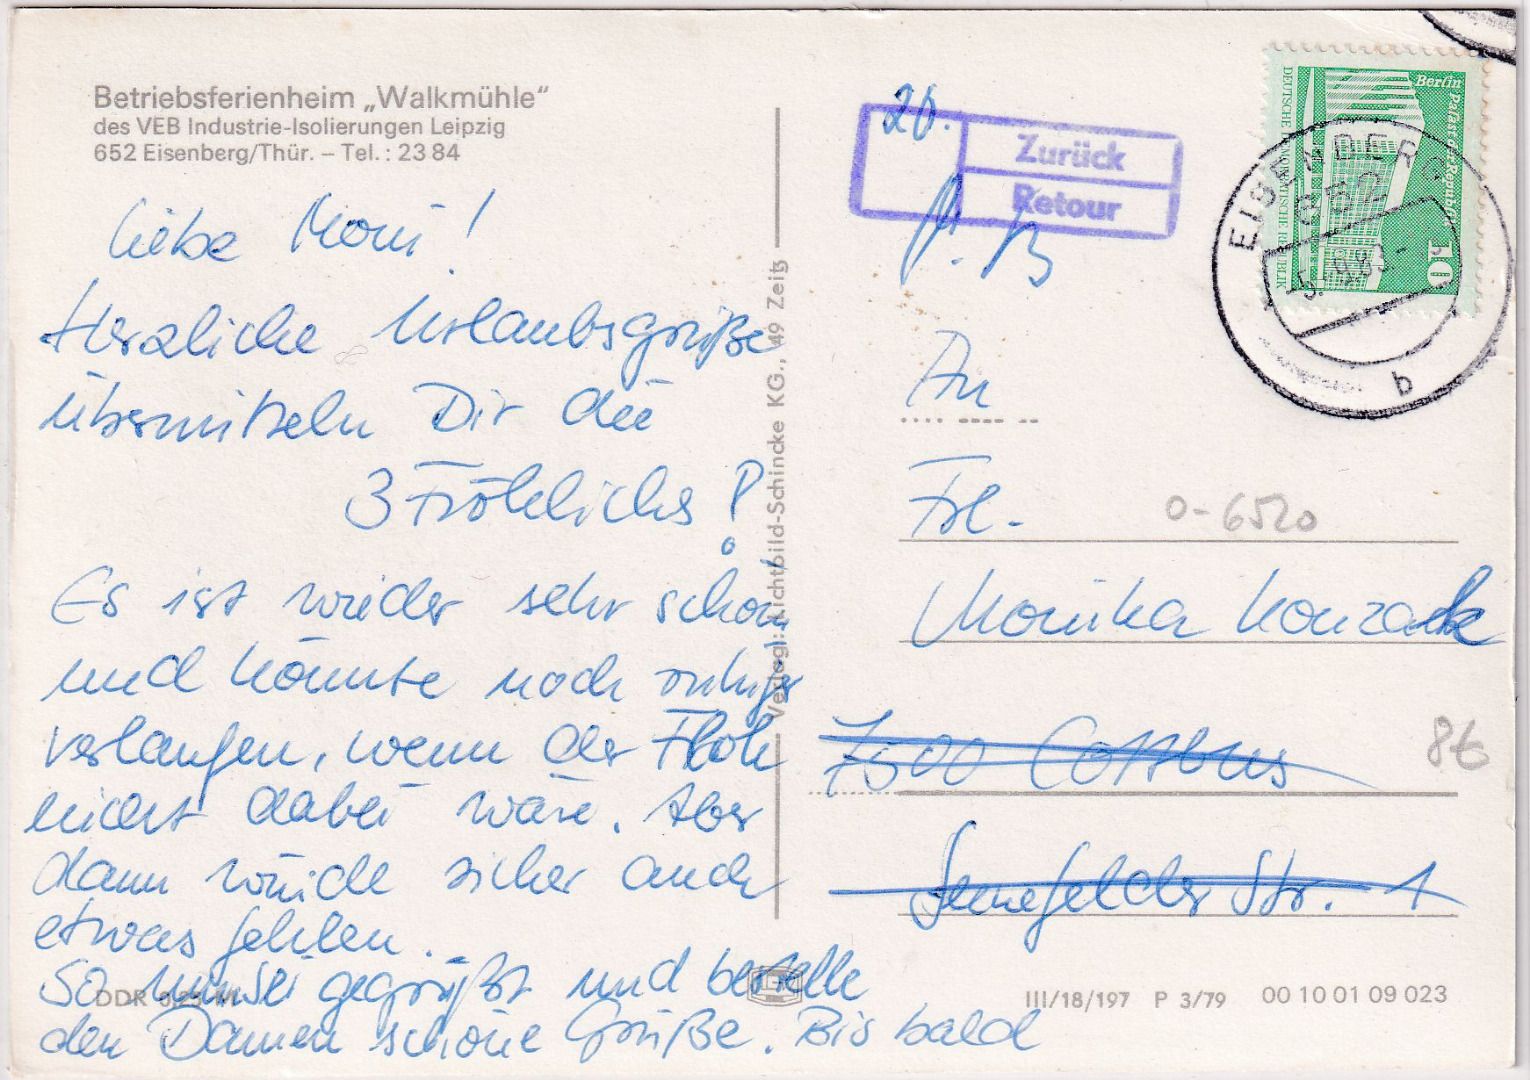 Betriebsferienheim „Walkmühle“
des VEB Industrie-Isolierungen Leipzig
652 Eisenberg/Thür. – Tel.: 23 84
Liebe Moni!
Herzliche Urlaubsgrüße
übermitteln Dir die
3 Fröhlichs!
Es ist wieder sehr schön
und könnte noch ruhiger
verlaufen, wenn der Floh
nicht dabei wäre. Aber
dann würde sicher auch
etwas fehlen.
So sei gegrüßt und bestelle
den Damen schöne Grüße. Bis bald
DDR
Verlag: Lichtbild-Schincke KG., 49 Zeitz
20.
Zurück
Retour
Berlin Palast der Republik
DEUTSCHE DEMOKRATISCHE REPUBLIK
10
EISENBERG
652
-5.-9.83.-
b
An
Frl.
0-6520
Monika Konzack
7500 Cottbus
86
Senefelder Str. 1
III/18/197 P 3/79 00 10 01 09 023